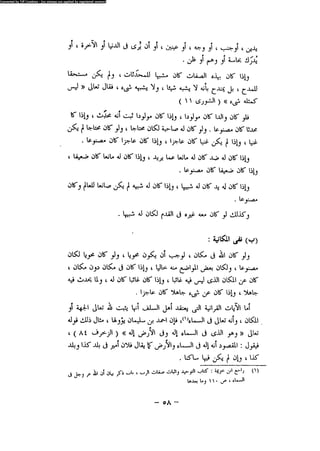 يديه ، أو وجه ، أو عينيه ، أو أن يرى في الدنيا أو الآخرة ، أو
يدرك بحاسة أو وهم أو ظن .
وإذا كان بهذه الصفات كان للمحدثات ، ولم يكن مستحقا
للمدح ، بل يندرج تحت أن لا يشبه شيئا ، ولا يشبهه شيء ، فقال تعالى « ليس
كمثله شيء » ( الشورى ١١ )
فلو كان والدا كان مولودا ، وإذا كان مولودا ثبت أنه محدث ، وإذا كان
محدثا كان مصنوعا ، ولو كان له صاحبة لكان محتاجا ، ولو كان محتاجا لم يكن
غنيا ، وإذا لم يكن غنيا كان عاجزا ، وإذا كان عاجزا كان مصنوعا .
وإذا كان له ضد كان له مانعا مما يريد ، وإذا كان له مانعا كان ضعيفا ،
وإذا كان ضعيفا كان مصنوعا .
وإذا كان له ند كان شبيها ، وإذا كان له شبيه لم يكن صانعا للعالم وكان
مصنوعا .
وكذلك لو كان معه غيره في القدم لكان له شبيها .
(ب) نفي المكانية :
لو كان الله في مكان ، لوجب أن يكون محويا ، ولو كان محويا لكان
مصنوعا ، ولكان بعض المواضع منه خاليا ، وإذا كان في مكان دون مكان ،
كان المكان الذي ليس فيه غائبا ، وإذا كان غائبا كان له ، ولما يحدث فيه
جاهلا ، وإذا كان عن شيء جاهلا كان عاجزا .
أما الآيات القرآنية التي يعتقد أهل السلف أنها يثبت الله تعالى الجهة أو
المكان ، وأنه تعالى في السماء(١)، فإن أحمد بن سليمان يؤولها ، مثال ذلك قوله
تعالى « وهو الذي في السماء إله وفي الأرض إله » ( الزخرف ٨٤ ) ،
فيقول : المقصود أنه إله في السماء والأرض كما يقال فلان أمير في بلد كذا وبلد
كذا ، وإن لم يكن فيها ساكنا .
(١) راجع ابن خزيمة : كتاب التوحيد واثبات صفات الرب ، باب ذكر بيان أن الله عز وجل في
السماء ، ص ١١٠ وما بعدها
– ٥٨ –